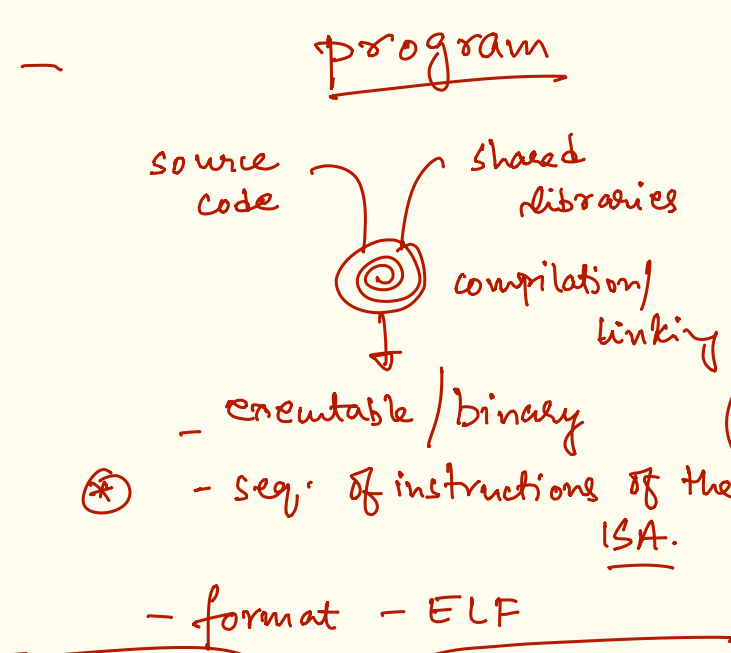 — program
source shared
code libraries
compilation/
linking
- executable/binary
* - seq. of instructions of the
ISA.
- format - ELF